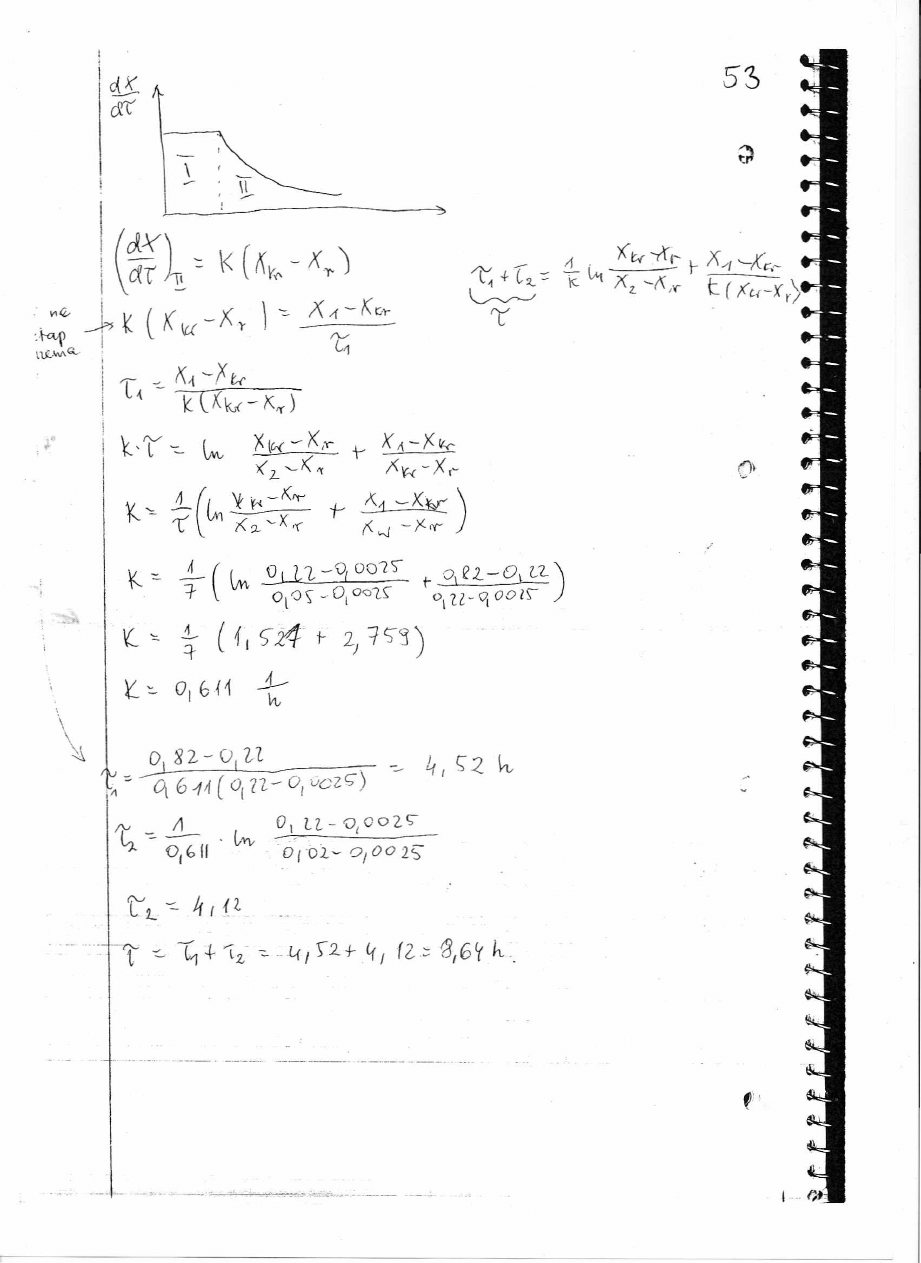 53
dX/dτ
I
II
(dX/dτ)_II = K(X_kr − X_r)
τ₁ + τ₂ = 1/K ln (X_kr − X_r)/(X₂ − X_r) + (X₁ − X_kr)/(K(X_kr − X_r))
τ
ne
K(X_kr − X_r) = (X₁ − X_kr)/τ₁
τ₁ = (X₁ − X_kr)/(K(X_kr − X_r))
K·τ = ln (X_kr − X_r)/(X₂ − X_r) + (X₁ − X_kr)/(X_kr − X_r)
K = 1/τ (ln (X_kr − X_r)/(X₂ − X_r) + (X₁ − X_kr)/(X_kr − X_r))
K = 1/7 (ln (0,22 − 0,0025)/(0,05 − 0,0025) + (0,82 − 0,22)/(0,22 − 0,0025))
K = 1/7 (1,521 + 2,759)
K = 0,611 1/h
τ₁ = (0,82 − 0,22)/(0,611(0,22 − 0,0025)) = 4,52 h
τ₂ = 1/0,611 · ln (0,22 − 0,0025)/(0,02 − 0,0025)
τ₂ = 4,12
τ = τ₁ + τ₂ = 4,52 + 4,12 = 8,64 h.